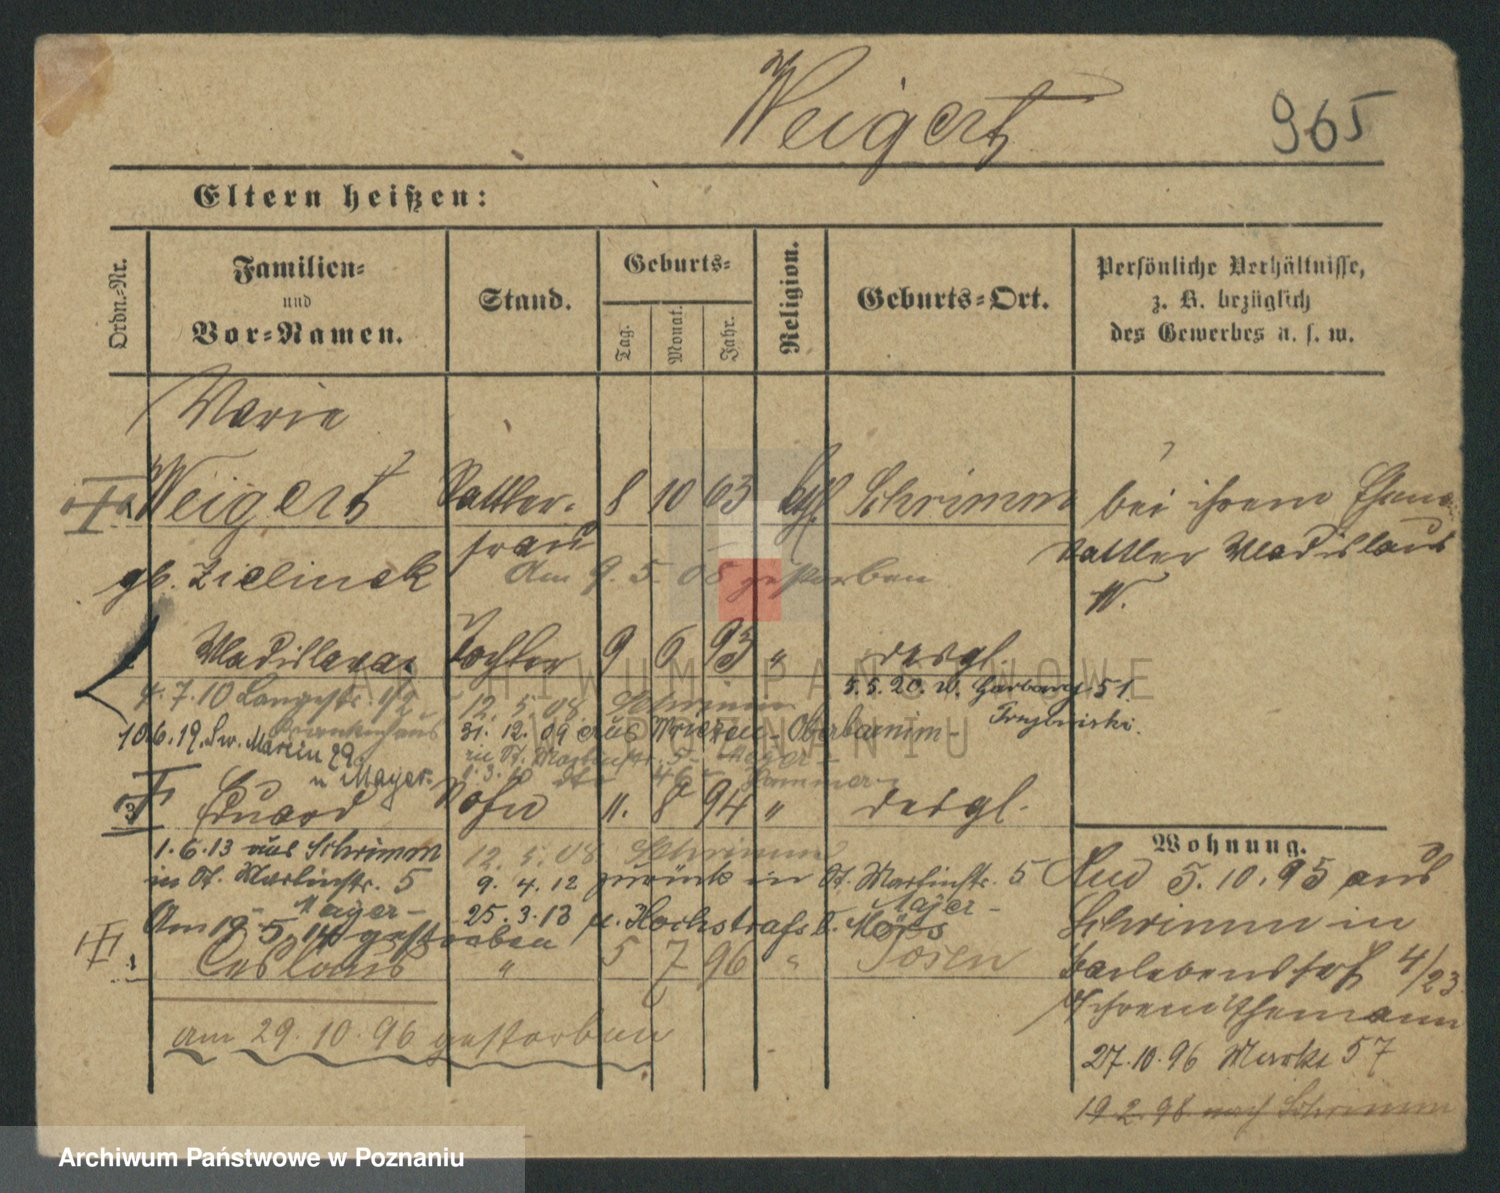 Weigert 965
Eltern heißen:
Ordn.-Nr.
Familien- und Vor-Namen.
Stand.
Geburts-
Tag.
Monat.
Jahr.
Religion.
Geburts-Ort.
Persönliche Verhältnisse,
z. B. bezüglich
des Gewerbes u. s. w.
Marie
Weigert Sattler- 8 10 63 kth. Schrimm bei ihrem Ehem.
frau Sattler Wladislaus
gb. Zielinsk Am 9. 5. 08 gestorben W.
Wladislawa Tochter 9 6 93 " desgl.
4. 7. 10 Langestr. 12. 5. 08 Schrimm 5. 5. 20. W. Garbary 51
Krankenhaus
10.6.19. Św. Marcin 29 31. 12. 09 aus Wriezen - Oberbarnim -
u Mayer. zu St. Martinstr. 5 - Mayer -
3 Eduard Sohn 11. 8 94 " desgl.
Wohnung.
1.6.13 aus Schrimm 12. 5. 08 Schrimm
in St. Martinstr. 5 9. 4. 12 zurück in St. Martinstr. 5
- Mayer - Majer -
Am 19 5. 14 gestorben 25. 3. 13 n. Hochstraß b. Mörs
Ceslaus " 5 7 96 " Posen
am 29. 10. 96 gestorben
5. 10. 95 aus
Schrimm in
4/23
Ehemann
27. 10. 96 Markt 57
19. 2. 98 nach Schrimm
ARCHIWUM PAŃSTWOWE
W POZNANIU
Archiwum Państwowe w Poznaniu